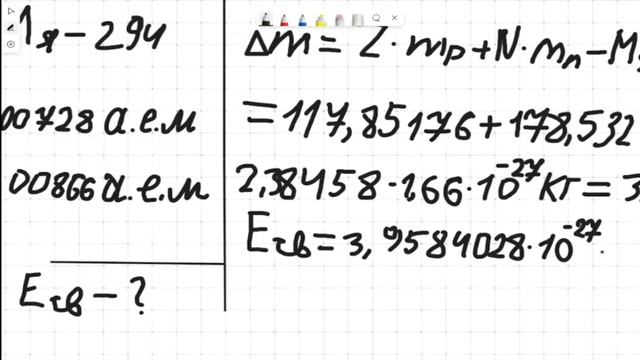 Mя - 294
00728 а.е.м
00866 а.е.м
Eсв - ?
Δm = Z · mp + N · mn - M
= 117,85176 + 178,532
2,38458 · 1,66 · 10⁻²⁷ кг = 3
Eсв = 3,9584028 · 10⁻²⁷ ·